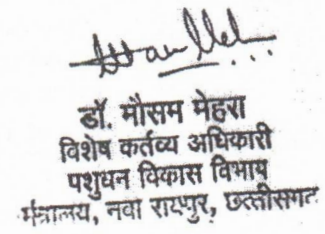 डॉ. मौसम मेहरा
विशेष कर्तव्य अधिकारी
पशुधन विकास विभाग
मंत्रालय, नवा रायपुर, छत्तीसगढ